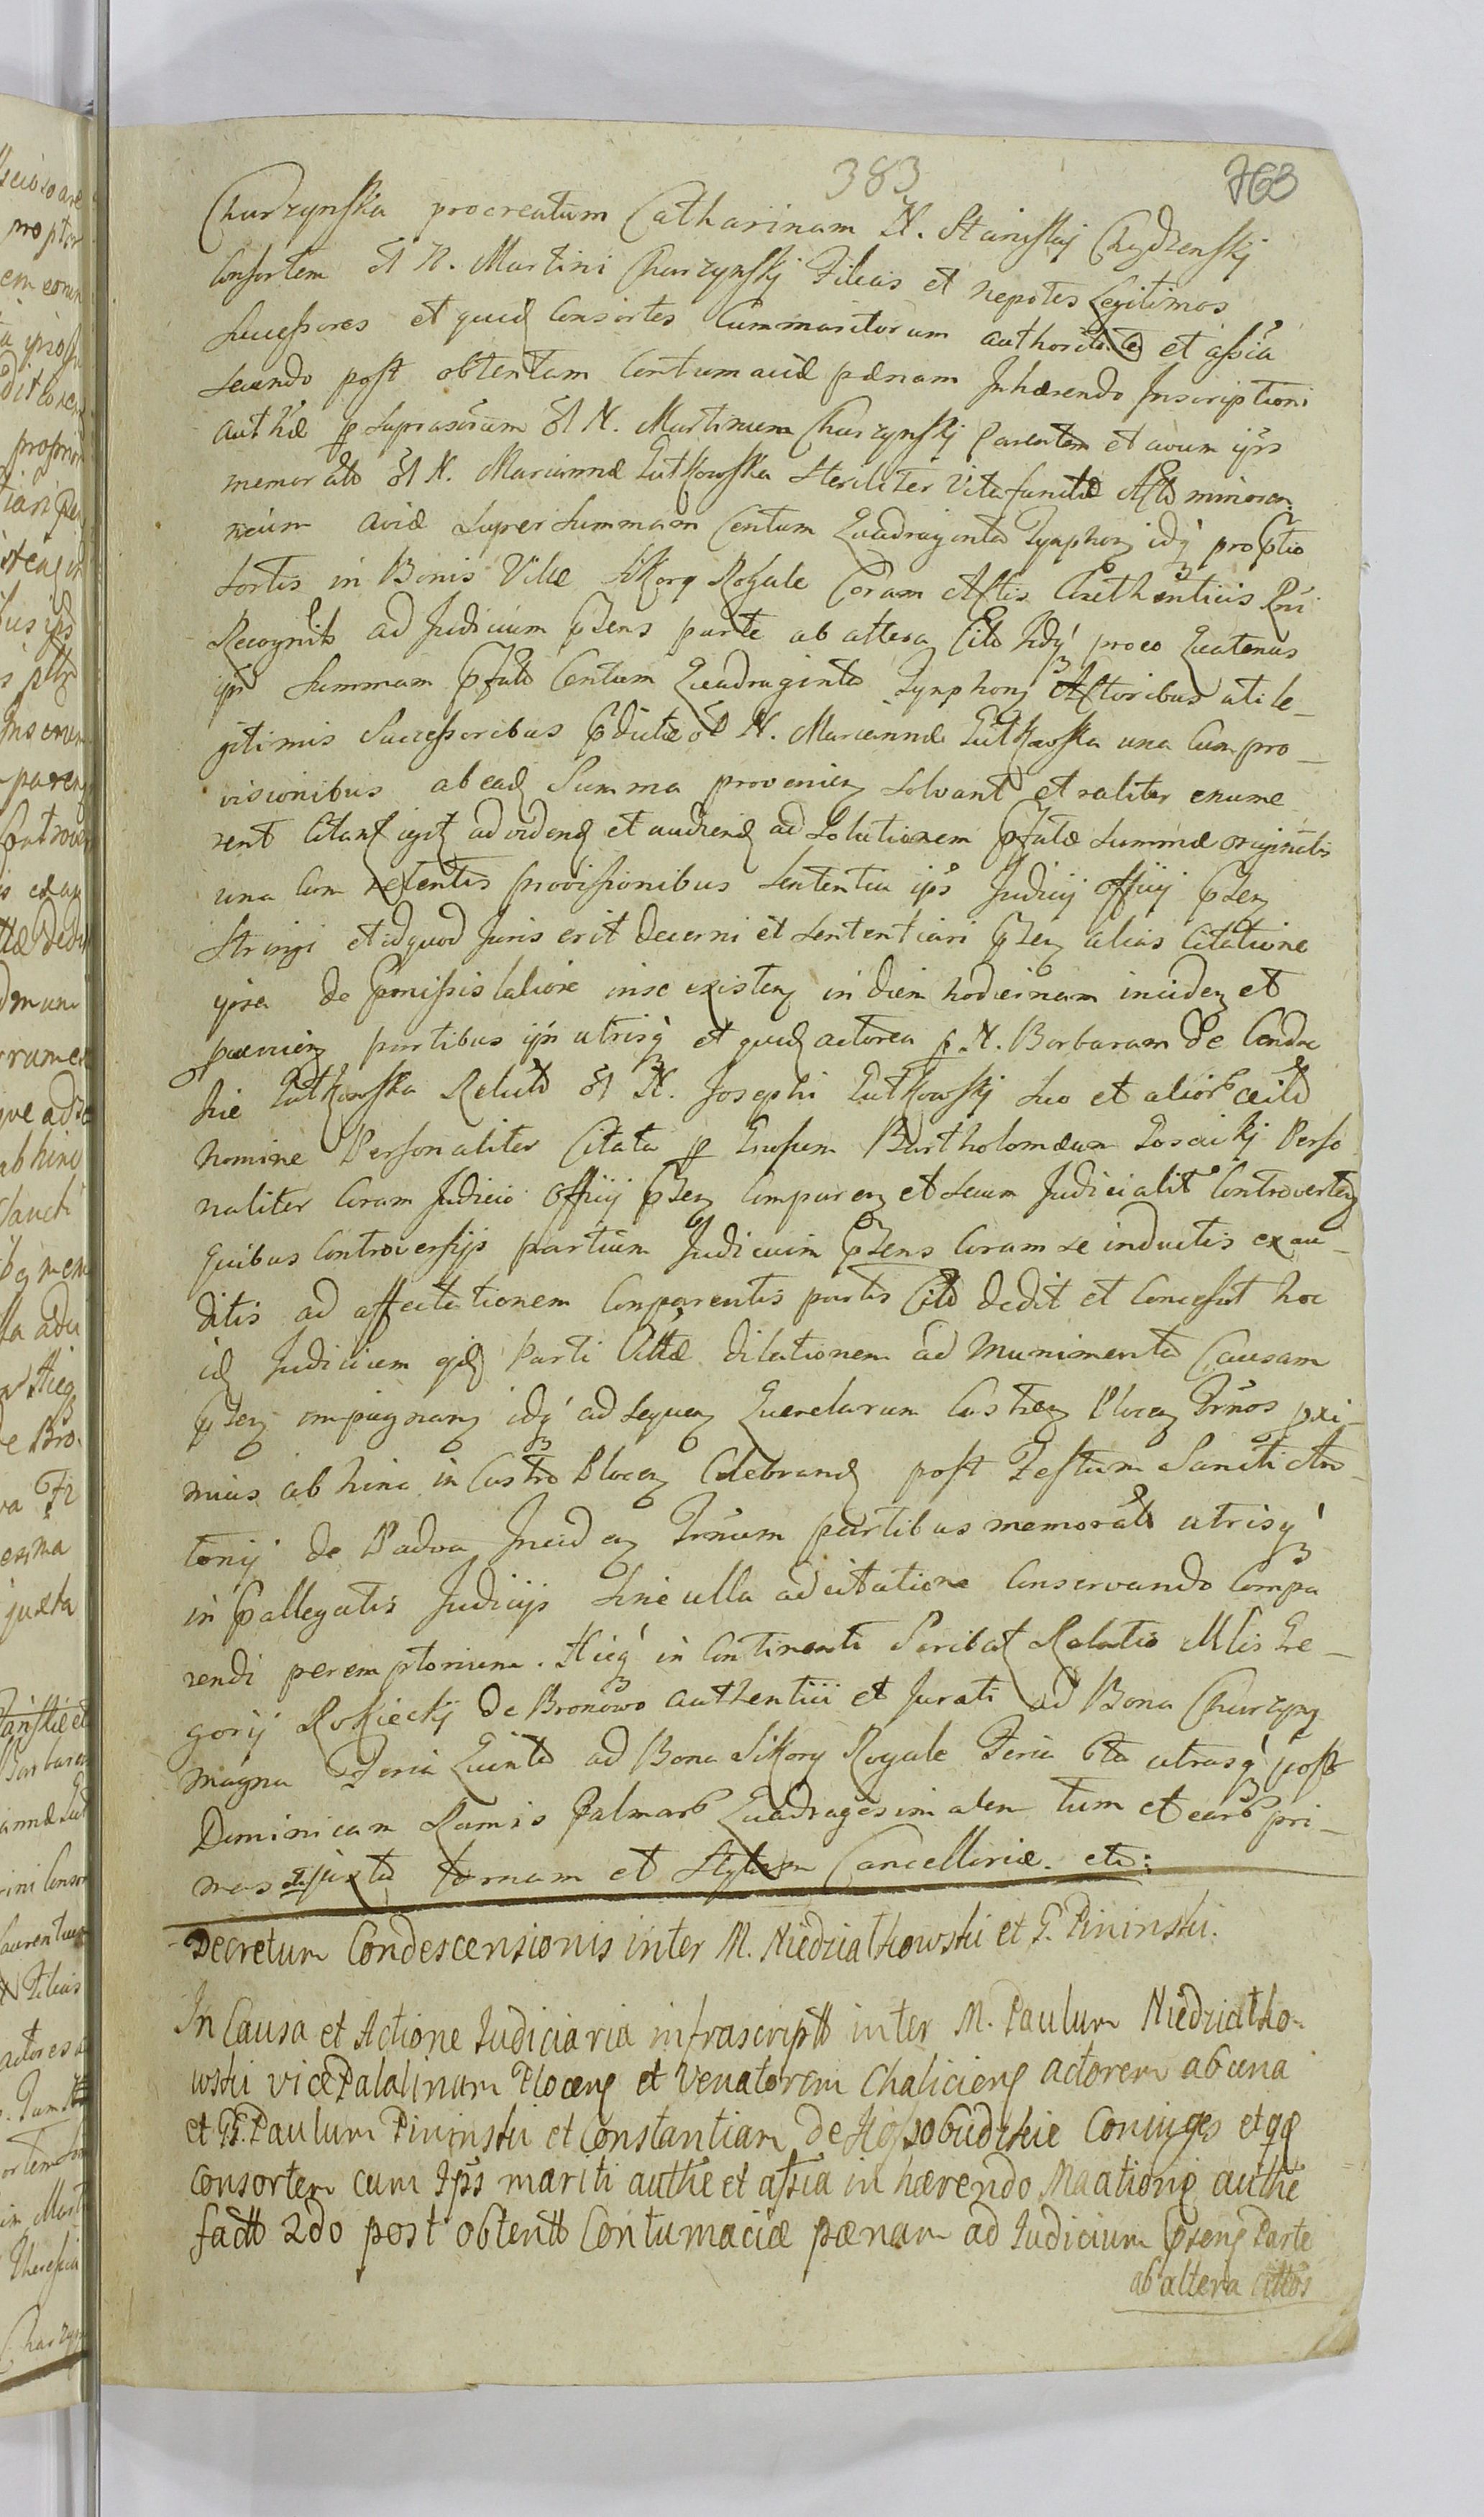 383
763
Churzynska procreatum Catharinam N. Stanislaj Chydzenskj
Consortem Ol N. Martini Churzynskj Filias et nepotes Legitimos
Successores et quid Consortes Cum maritorum authoritate et assia
secundo post obtentam Contumaciæ pænam Inhærendo Inscriptioni
auth̄æ p suprascrum Ol N. Martinum Churzynskj Parentem et avum ip̄rs
memorato Ol N. Mariannæ Lutkowska steriliter Vita functæ Acto minoren
neium aviæ super summam Centum Quadraginta Tynphonz idq́ proptio
sortis in Bonis Villæ Sikorz Rogale Coram Actis Authenticis Pn̄i
Recognito ad Judicium p̄sens parte ab altera Cito Idq́ pro eo Quatenus
ip̄i Summam p̄fato Centum Quadraginta Tynphonz Actoribus uti le_
gitimis Successoribus p̄dictæ ol N. Mariannæ Lutkowska una Cum pro_
visionibus ab eadz Summa provenienz Solvant et raliter enume
rent Citant igitz ad videndz et audiendz ad Solutionem p̄fatæ Summæ originalis
una Cum retentis provissionibus Sententia ip̄s Judicij Officij p̄senz
Stringi et id quod Juris erit decerni et Sententiari p̄senz alias Citatione
ipsa de p̄missis latiore in se existenz in diem hodiernam incidenz et
pævenienz partibus ip̄n utrisq́ et quidz actorea p N. Barbaram de Cendro
skie Lutkowska Relicto Ol N. Josephi Lutkowskj Suo et alior̄ actto
nomine Personaliter Citata p Gnosum Bartholomæum Goscickj Perso
naliter Coram Judicio Officij p̄senz Comparenz et Secum Judicialit̄ Controvertenz
Quibus Controversijs partium Judicium p̄sens Coram Se inductis exau_
ditis ad affectationem Comparentis partis Cito dedit et Concessit hoc
idz Judicium ejdz Parti Cittæ dilationem ad Munimenta Causam
p̄senz impugnanz idq́ ad Sequenz Querelarum Castrenz Plocenz Tr̄nos pxi_
mius ab hinc in Castro Plocenz Celebrandz post Festum Sancti An_
tonij de Padua Incidenz Tr̄num partibus memorato utrisq́
in p̄allegatis Judicijs Sine ulla adcitatione Conservando Compa
rendi peremptorium. Hicq́ in Continenti Scribat Relatio Mlis Gre_
gorij Rokieckj de Bronowo authentici et Jurati ad Bona Churzynz
magna Feria Quinta ad Bona Sikorz Rogale Feria 6ta utrasq́ post
Dominicam Ramis Palmar̄ Quadragesimalem tum et ear̄ pri_
mas juxta formam et Stylum Cancellariæ. etc:
Decretum Condescensionis inter M. Niedziałkowski et G. Pininski.
In Causa et Actione Judiciaria infrascriptt inter M. Paulum Niedziałko-
wski vicePalatinum Plocenz et Venatorem Chalicienz actorem ab una
et GG. Paulum Pininski et Constantiam de Kossobudzkie Coniuges et qdz
consortem cum Ips̄ mariti auth̄e et ass̄ia in hærendo Maationi auth̄e
factt 2do post obtentt Contumaciæ pænam ad Judicium p̄senz Parte
ab altera cittos